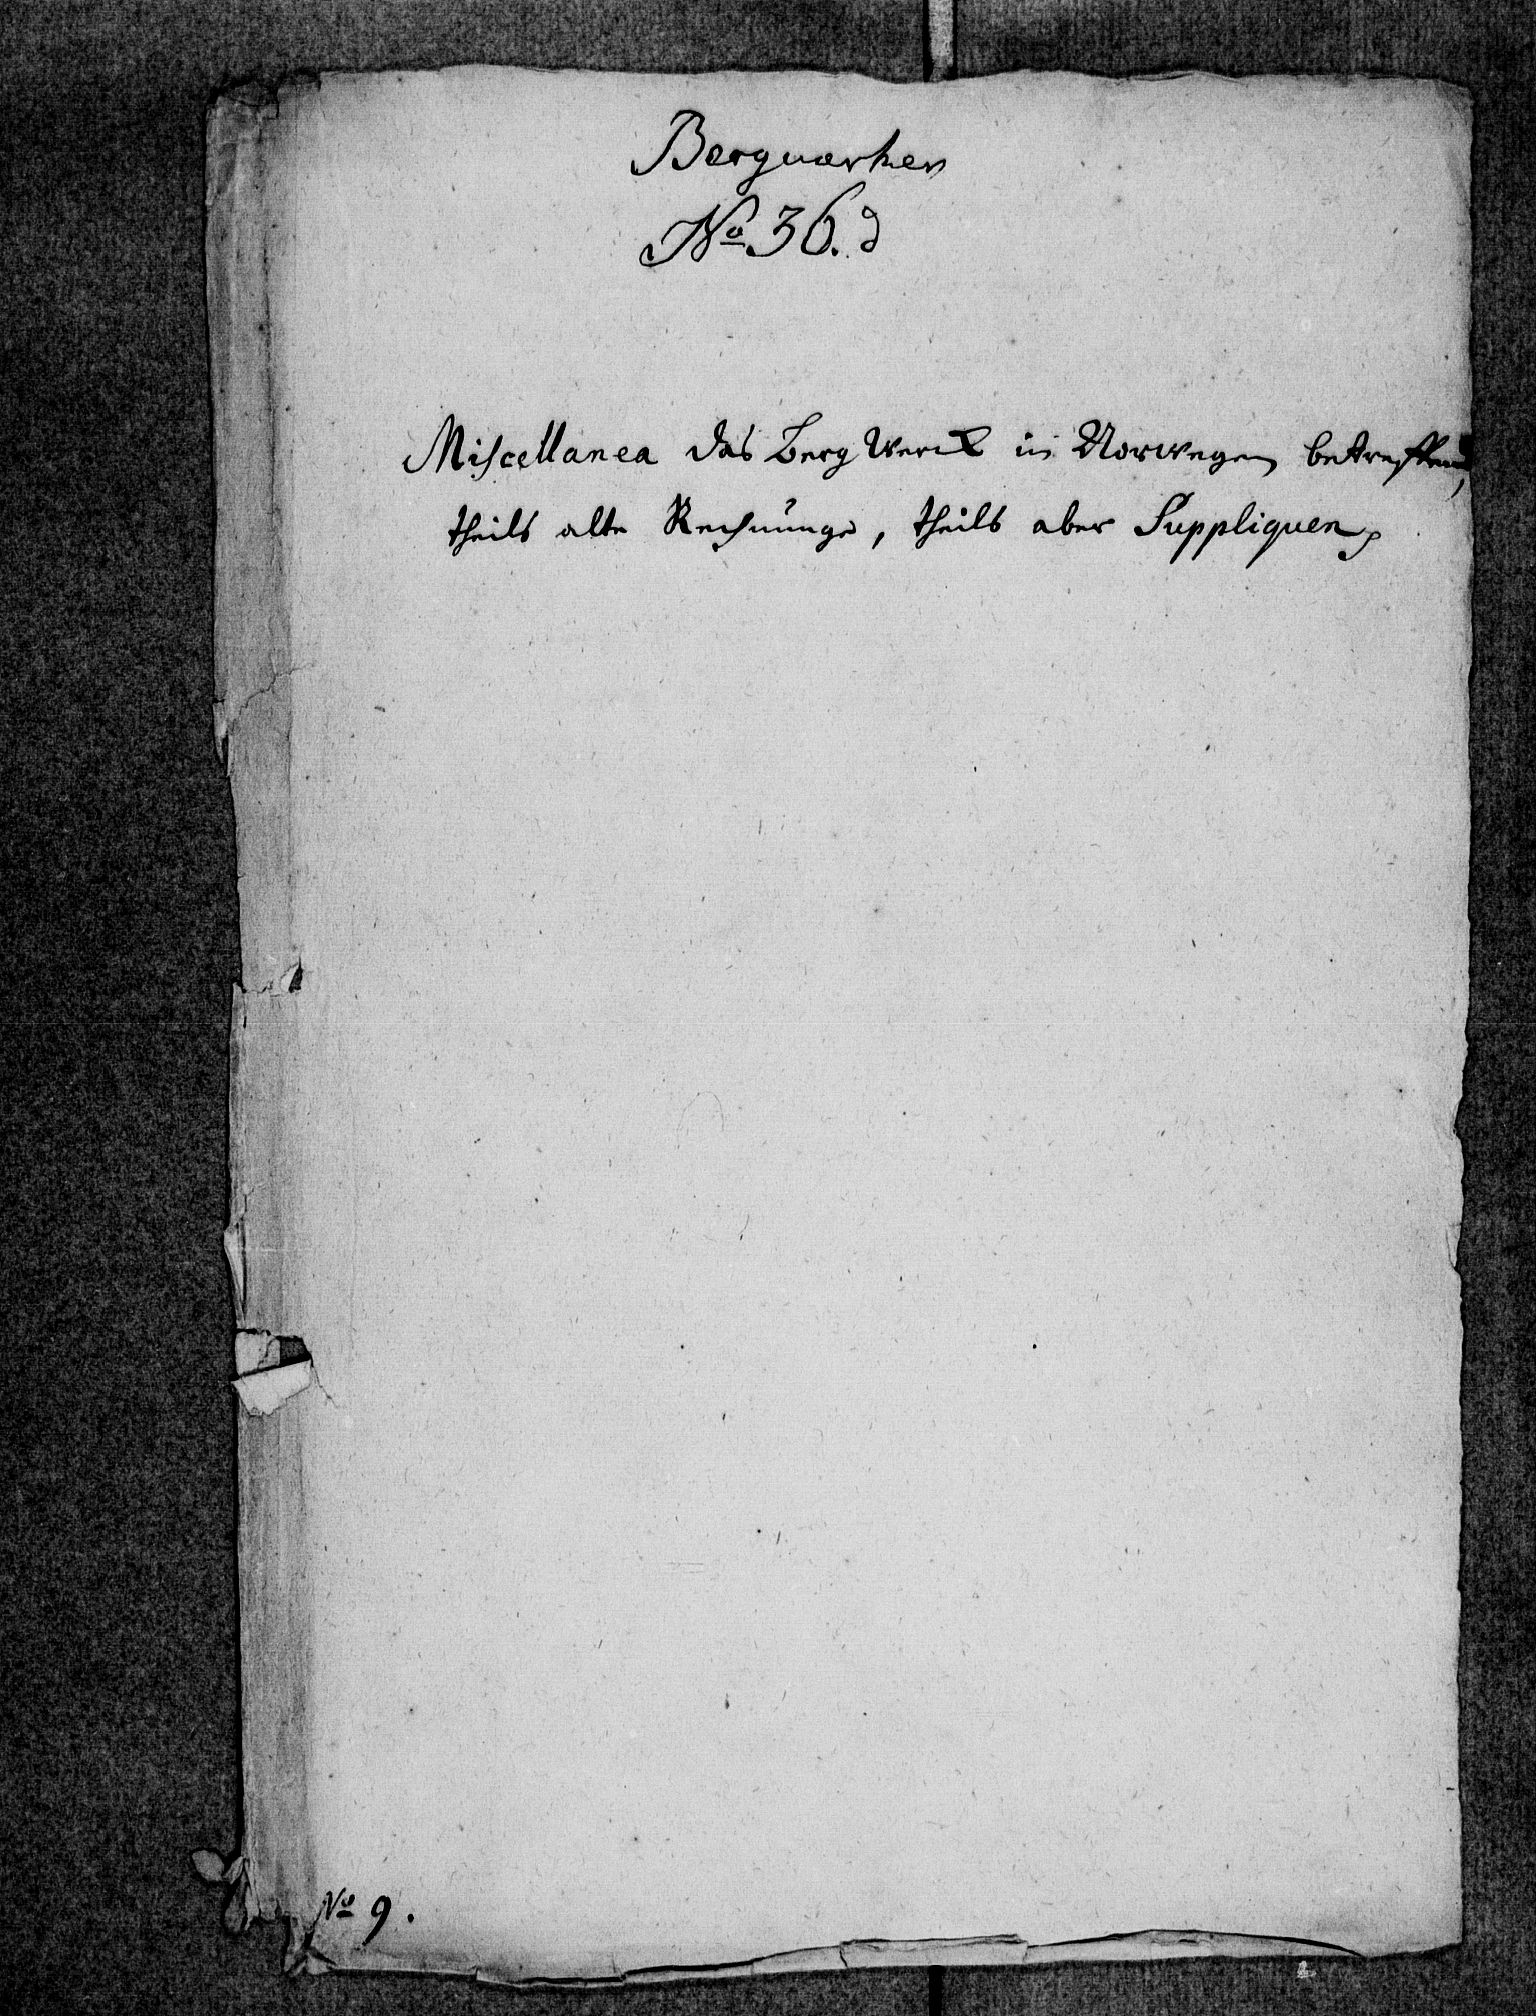 Bergværker
No 36. d
Miscellanea das Berg Werck in Norwegen betreffend,
theils alte Rechnunge, theils aber Suppliquen
No 9.